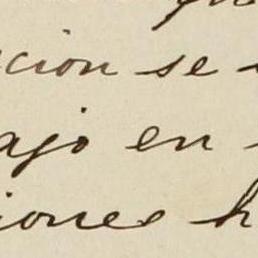 cion se
ajo en
iones h